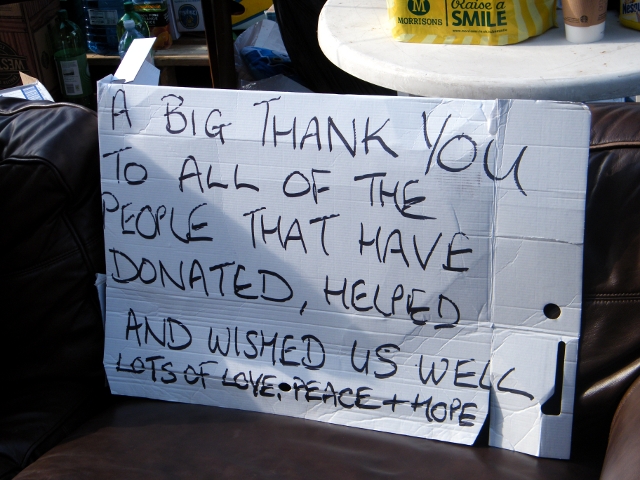 M
MORRISONS
Raise a
SMILE
A BIG THANK YOU
TO ALL OF THE
PEOPLE THAT HAVE
DONATED, HELPED
AND WISHED US WELL
LOTS OF LOVE. PEACE + HOPE